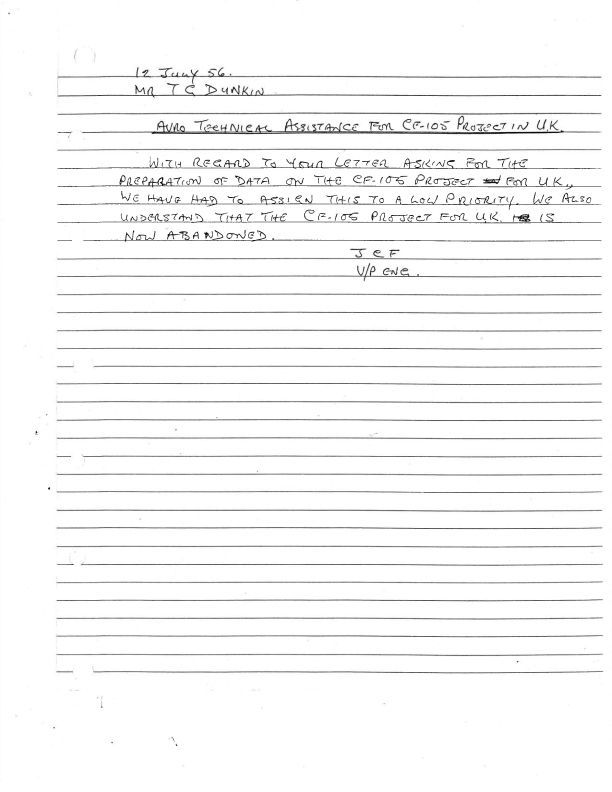 12 July 56.
MR T G DUNKIN
AVRO TECHNICAL ASSISTANCE FOR CF-105 PROJECT IN U.K.
WITH REGARD TO YOUR LETTER ASKING FOR THE
PREPARATION OF DATA ON THE CF-105 PROJECT FOR U.K.,
WE HAVE HAD TO ASSIGN THIS TO A LOW PRIORITY. WE ALSO
UNDERSTAND THAT THE CF-105 PROJECT FOR U.K. IS
NOW ABANDONED.
J C F
V/P ENG.